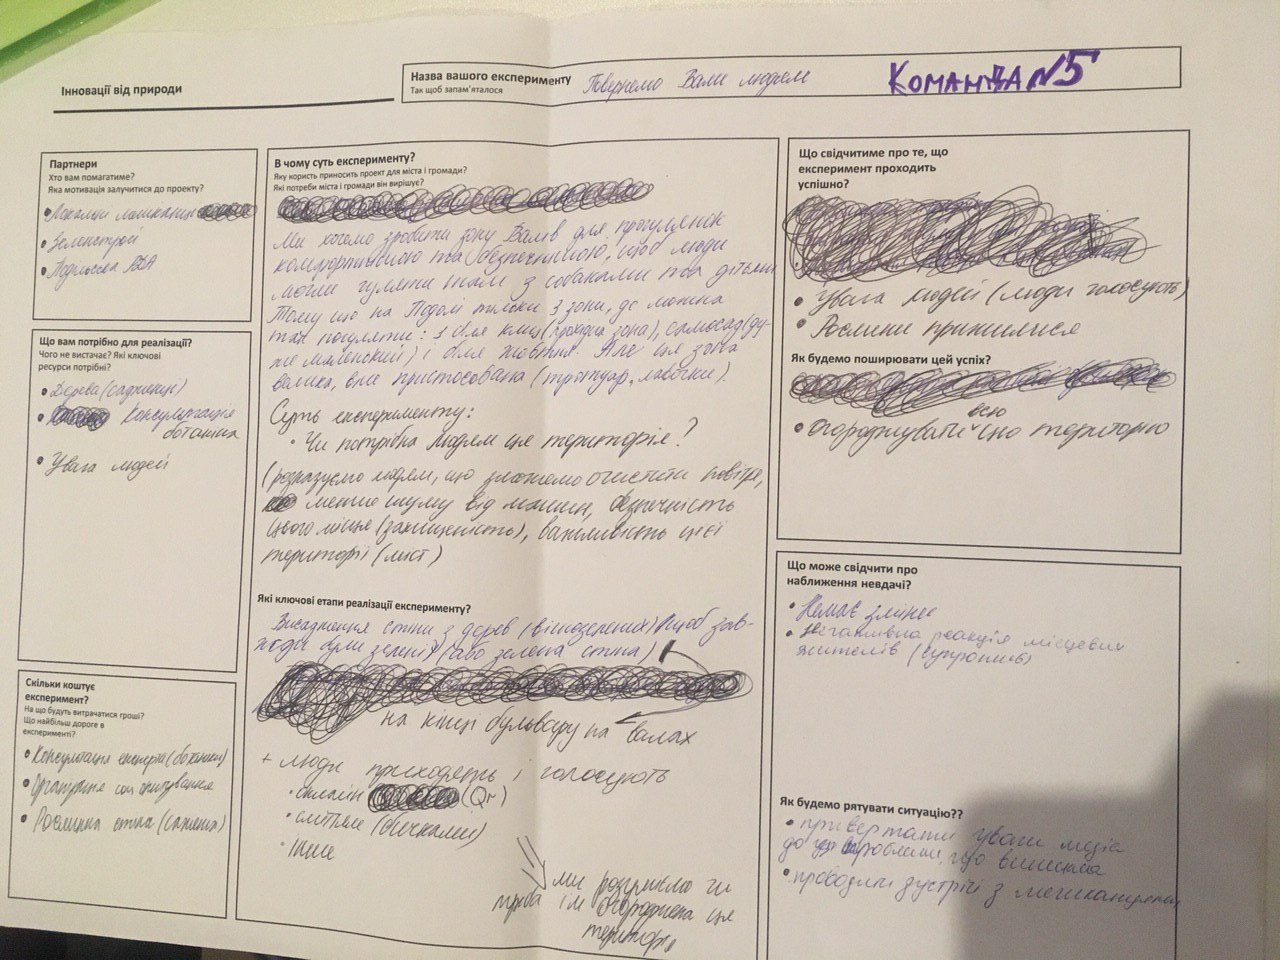 Інновації від природи
Назва вашого експерименту
Так щоб запам'яталося
Повернемо Вали людям
КОМАНДА №5
Партнери
Хто вам помагатиме?
Яка мотивація залучитися до проекту?
Локальні мешканці
Зеленстрой
Подільська РДА
Що вам потрібно для реалізації?
Чого не вистачає? Які ключові
ресурси потрібні?
Дерева (саджанці)
Консультація
ботаніка
Увага людей
Скільки коштує
експеримент?
На що будуть витрачатися гроші?
Що найбільш дороге в
експерименті?
Консультація експерта (ботаніки)
опитування
Рослинна стіна (саженці)
В чому суть експерименту?
Яку користь приносить проект для міста і громади?
Які потреби міста і громади він вирішує?
Ми хочемо зробити зону Валів для прогулянок
комфортнішою та безпечнішою, щоб люди
могли гуляти там з собаками та дітьми
Тому що на Подолі тільки 3 зони, де можна
так погуляти: з біля (прохідна зона), самосад (ду-
же маленький) і біля Жовтня. Але ця зона
велика, вже пристосована (тротуар, лавочки).
Суть експерименту:
Чи потрібна людям ця територія?
(розказуємо людям, що зможемо очистити повітря,
менше шуму від машин, безпечність
цього місця (захищеність), важливість цієї
території (лист)
Які ключові етапи реалізації експерименту?
Висадження стіни з дерев (вічнозелених) щоб зав-
жди були зелені) (або зелена стіна)
на кінці бульвару на валах
+ люди приходять і голосують
онлайн (Qr)
смітям (бичками)
інше
ми розуміємо чи
треба їм огороджена ця
територія
Що свідчитиме про те, що
експеримент проходить
успішно?
Увага людей (люди голосують)
Рослини прижилися
Як будемо поширювати цей успіх?
всю
огороджувати цю територію
Що може свідчити про
наближення невдачі?
Немає змінес
Негативна реакція місцевих
жителів
Як будемо рятувати ситуацію??
привертати уваги медіа
до проблеми, що виникла
проводили зустрічі з мешканцями